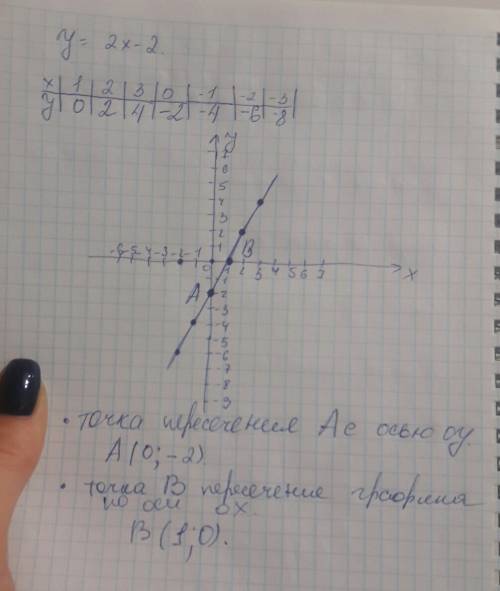 y = 2x-2.
x | 1 | 2 | 3 | 0 | -1 | -2 | -3 |
y | 0 | 2 | 4 | -2 | -4 | -6 | -8 |
y
7
6
5
4
3
2
1
B
-6 -5 -4 -3 -2 -1 0 1 2 3 4 5 6 7 x
A
-1
-2
-3
-4
-5
-6
-7
-8
-9
• точка пересечения А с осью оу.
А(0;-2).
• точка В пересечение графика
по оси ох.
В(1;0).